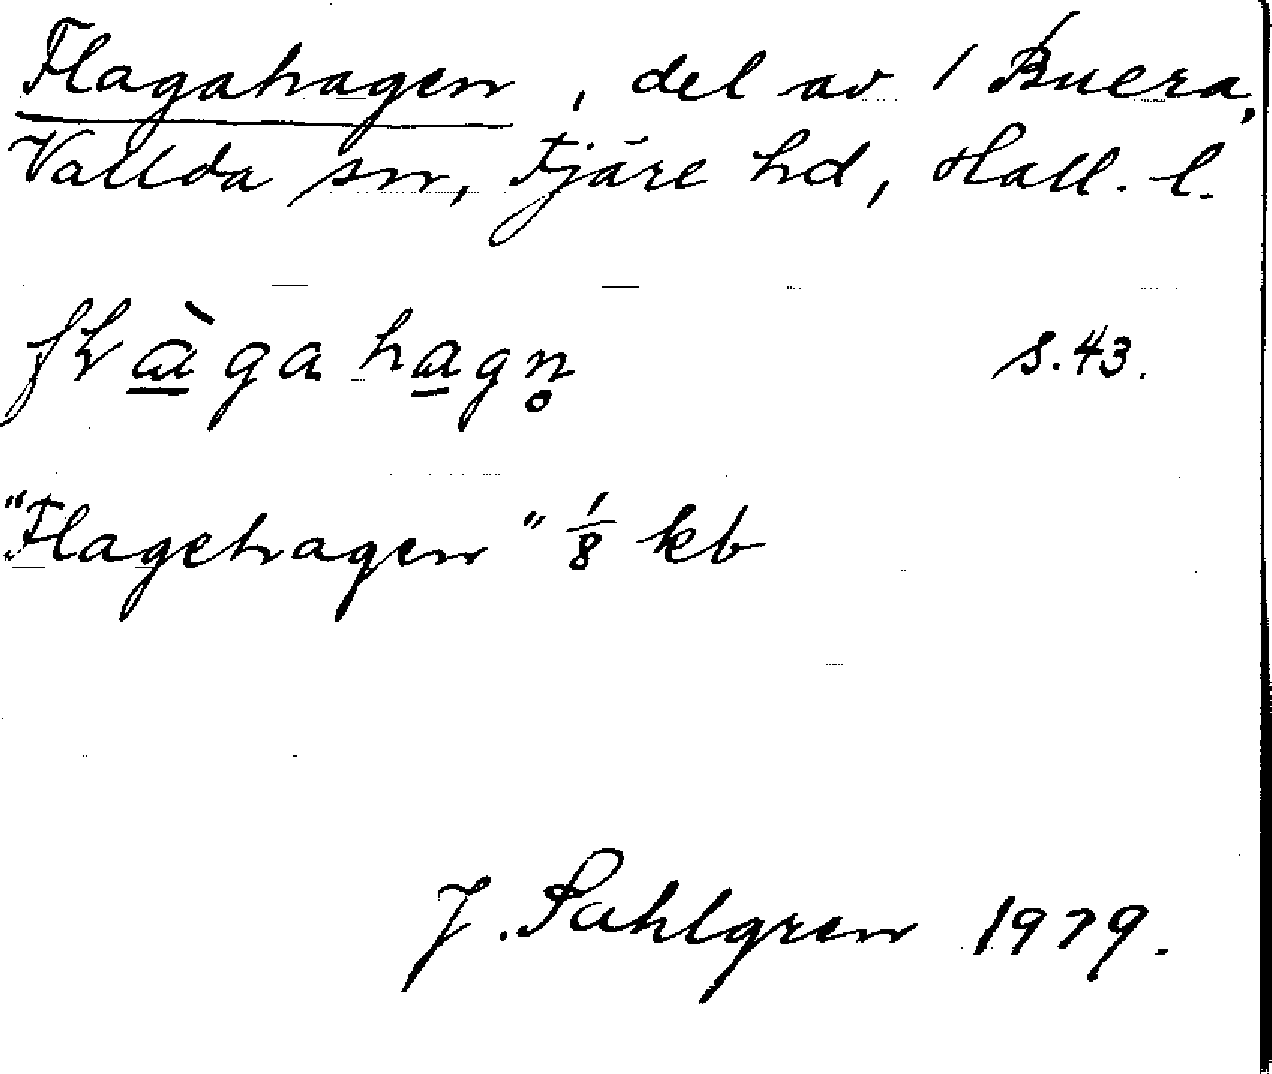 Flagahagen, del av 1 Buera,
Vallda sn, Fjäre hd, Hall. l.
s. 43.
"Flagehagen" 1/8 kb
J. Sahlgren 1979.